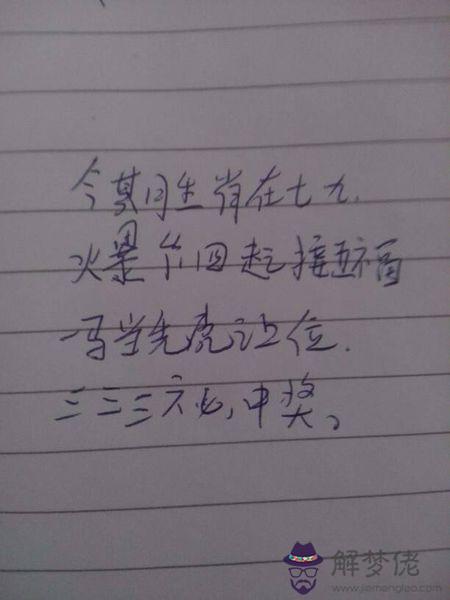 今期生肖在七九.
爆竹四起接五福
一马当先虎让位.
三三三六必,中奖。
解梦佬
www.jiemenglao.com